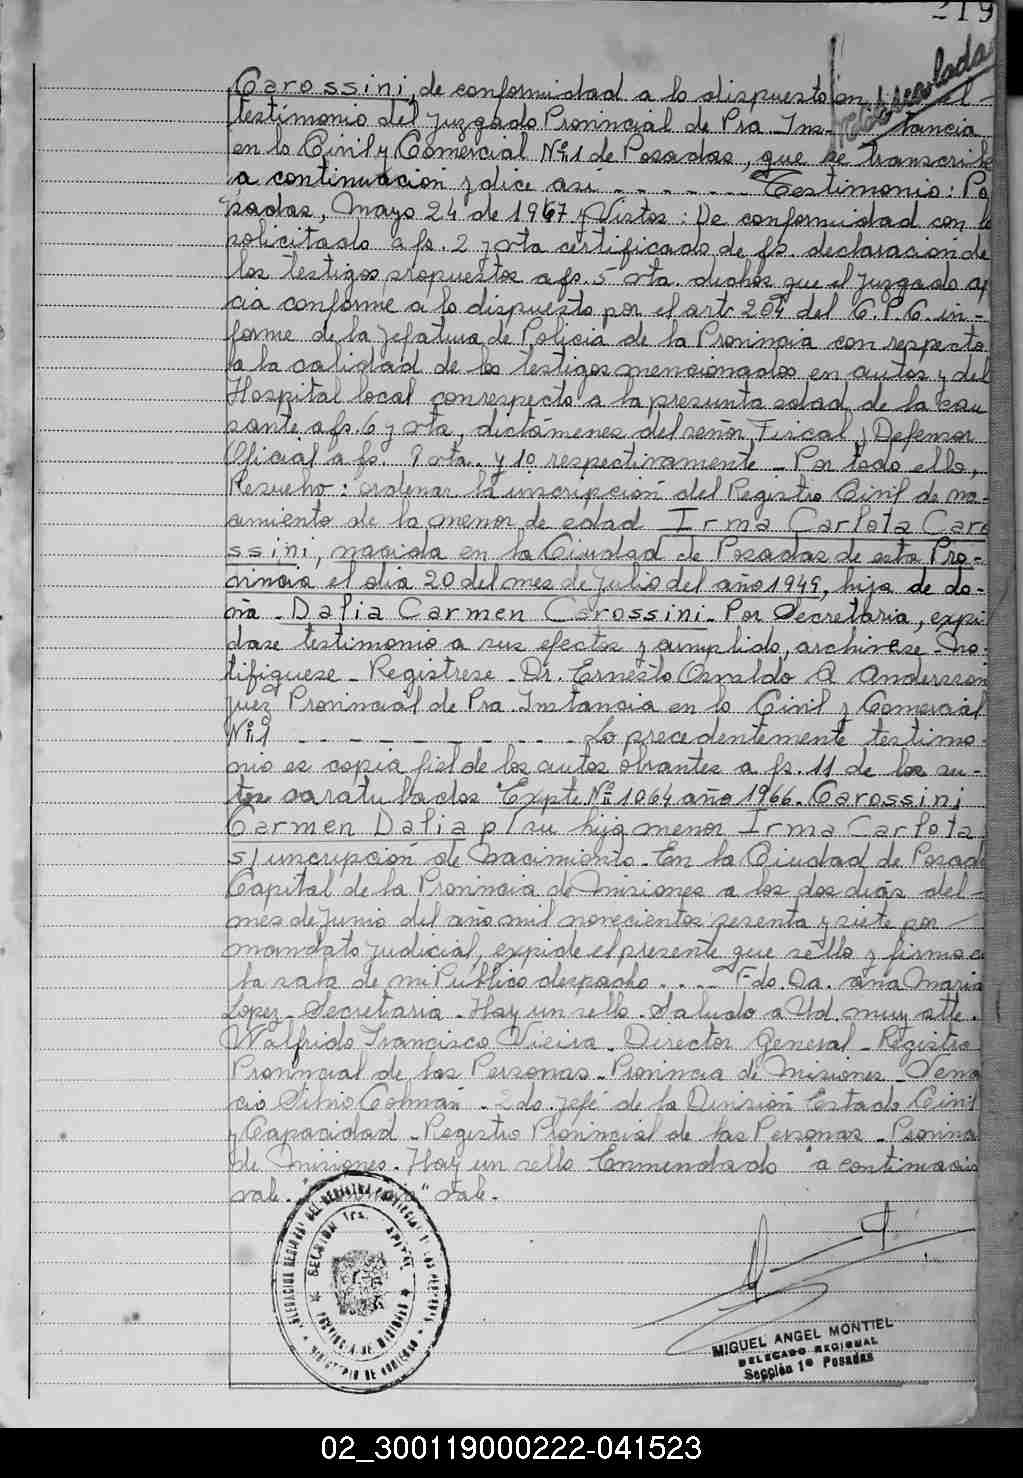 219
Fotocopiada
Carossini, de conformidad a lo dispuesto en el
testimonio del Juzgado Provincial de Pra. Ins- tancia
en lo Civil y Comercial Nº1 de Posadas, que se transcribe
a continuación y dice así - - - - - - - Testimonio: Po
sadas, Mayo 24 de 1967 y Vistos: De conformidad con lo
solicitado a fs. 2 y vta certificado de fs. declaración de
los testigos propuestos a fs. 5 vta. dichos que el Juzgado
cia conforme a lo dispuesto por el art. 204 del C.P.C. in-
forme de la Jefatura de Policia de la Provincia con respecto
a la calidad de los testigos mencionados en autos y del
Hospital local con respecto a la presunta edad de la cau
sante a fs. 6 y vta, dictámenes del señor Fiscal y Defensor
Oficial a fs. 9 vta. y 10 respectivamente - Por todo ello,
Resuelvo: ordenar la inscripción del Registro Civil de na-
cimiento de la menor de edad Irma Carlota Caro
ssini, nacida en la Ciudad de Posadas de esta Pro-
vincia el día 20 del mes de Julio del año 1949, hija de do-
ña - Dalia Carmen Carossini - Por Secretaria, expi
dase testimonio a sus efectos y cumplido, archivese - No-
tifiquese - Registrese - Dr. Ernesto Osvaldo R Andersson
Juez Provincial de Pra. Instancia en lo Civil y Comercial
Nº1 - - - - - - - - - - - Lo precedentemente testimo-
nio es copia fiel de los autos obrantes a fs. 11 de los au-
tos caratulados "Expte Nº 1064 año 1966. Carossini
Carmen Dalia p/su hija menor Irma Carlota
s/inscripción de Nacimiento - En la Ciudad de Posad
Capital de la Provincia de Misiones a los dos días del -
mes de Junio del año mil novecientos sesenta y siete por
mandato Judicial, expide el presente que sello y firmo e
la sala de mi Público despacho - - - - Fdo. Da. Ana Maria
Lopez - Secretaria - Hay un sello. Saludo a Ud. muy atte.
Walfrido Francisco Vieira - Director General - Registro
Provincial de las Personas - Provincia de Misiones - Vena
cio Silvio Colmán - 2do. Jefe de la División Estado Civil
y Capacidad - Registro Provincial de las Personas - Provinc
de Misiones. Hay un sello. Enmendado "a continuación
vale. " vale.
DELEGACION REGIONAL DEL REGISTRO PROVINCIAL DE LAS PERSONAS
SECCION 1ra. CAPITAL
PROVINCIA DE MISIONES
MINISTERIO DE GOBIERNO
MIGUEL ANGEL MONTIEL
DELEGADO REGIONAL
Sección 1º Posadas
02_300119000222-041523